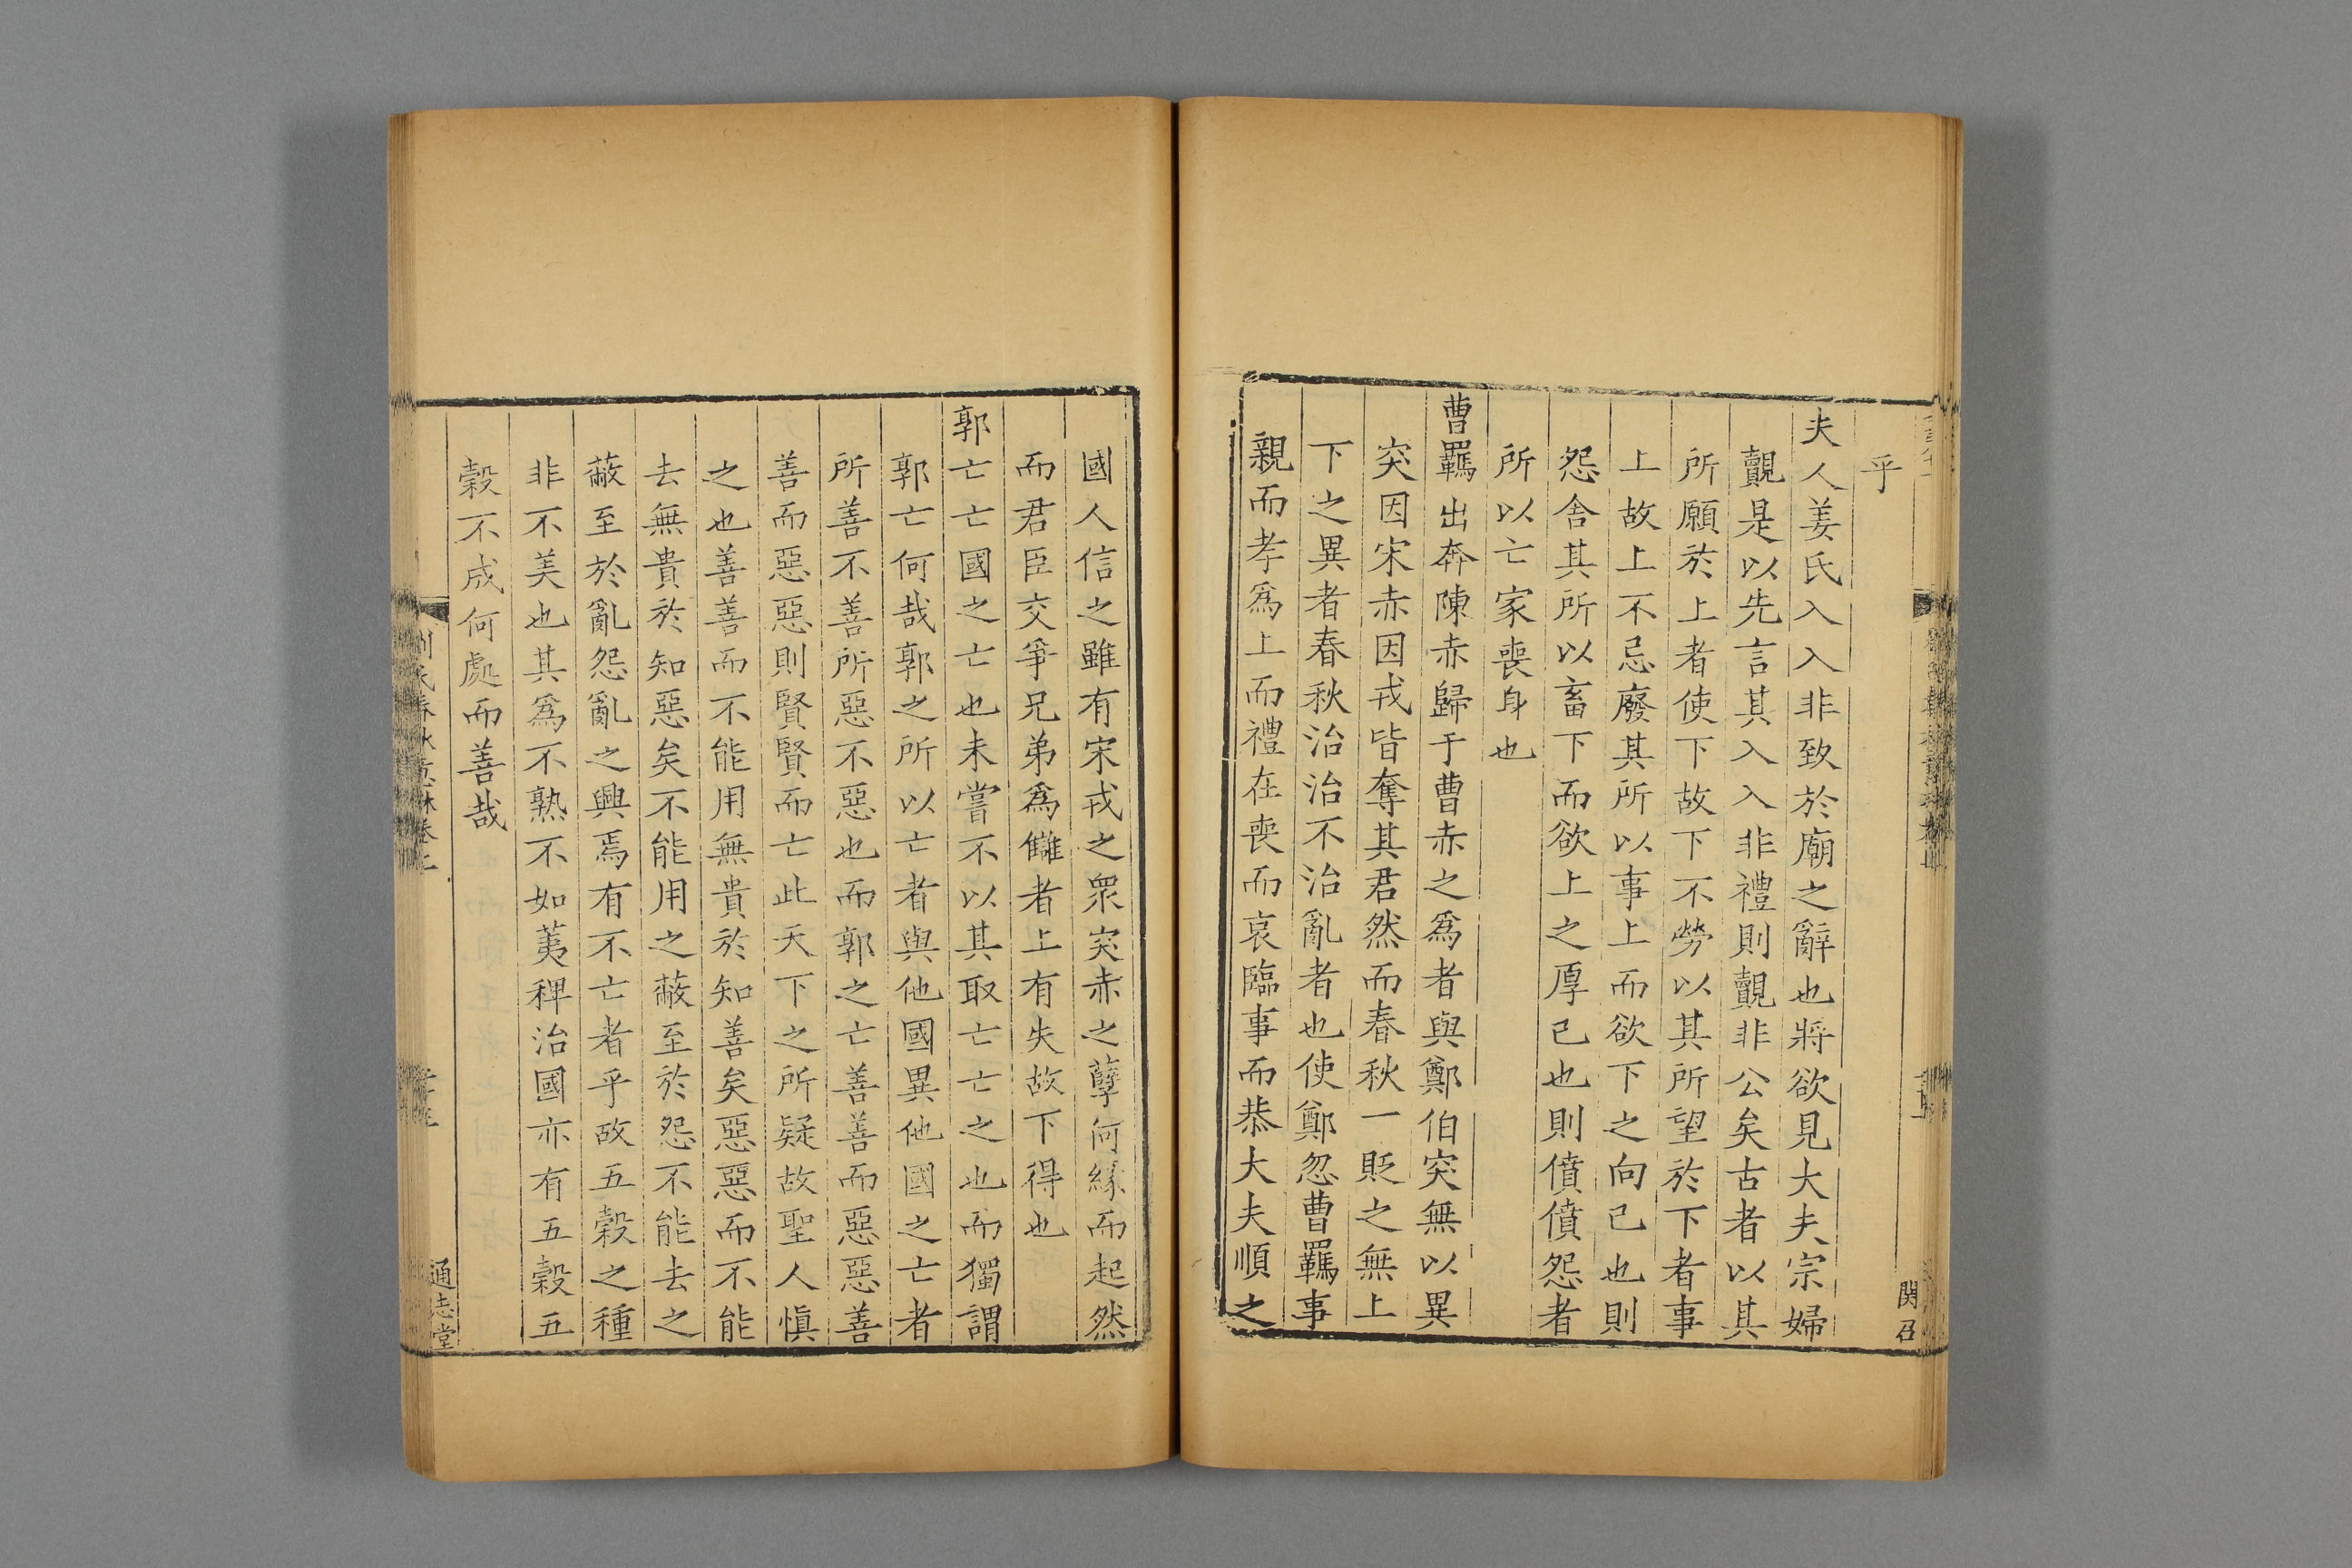 乎
夫人姜氏入入非致於廟之辭也將欲見大夫宗婦
覿是以先言其入入非禮則覿非公矣古者以其
所願於上者使下故下不勞以其所望於下者事
上故上不忌廢其所以事上而欲下之向己也則
怨舍其所以畜下而欲上之厚己也則僨僨怨者
所以亡家喪身也
曹羈出奔陳赤歸于曹赤之爲者與鄭伯突無以異
突因宋赤因戎皆奪其君然而春秋一貶之無上
下之異者春秋治治不治亂者也使鄭忽曹羈事
親而孝爲上而禮在喪而哀臨事而恭大夫順之
関召
國人信之雖有宋戎之衆突赤之孽何緣而起然
而君臣交爭兄弟爲讎者上有失故下得也
郭亡亡國之亡也未嘗不以其取亡亡之也而獨謂
郭亡何哉郭之所以亡者與他國異他國之亡者
所善不善所惡不惡也而郭之亡善善而惡惡善
善而惡惡則賢賢而亡此天下之所疑故聖人慎
之也善善而不能用無貴於知善矣惡惡而不能
去無貴於知惡矣不能用之蔽至於怨不能去之
蔽至於亂怨亂之興焉有不亡者乎故五穀之種
非不美也其爲不熟不如荑稗治國亦有五穀五
穀不成何處而善哉
劉氏春秋意林卷上
通志堂